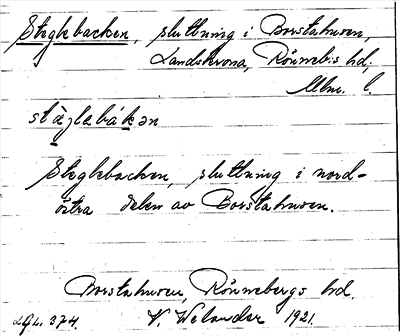 Steglebacken, sluttning i Borstahusen,
Landskrona, Rönneb:s hd,
Mlm. l.
stæ̀glabákən
Steglebacken, sluttning i nord-
östra delen av Borstahusen.
Borstahusen, Rönnebergs hd.
LGL. 374. V. Welander 1921.